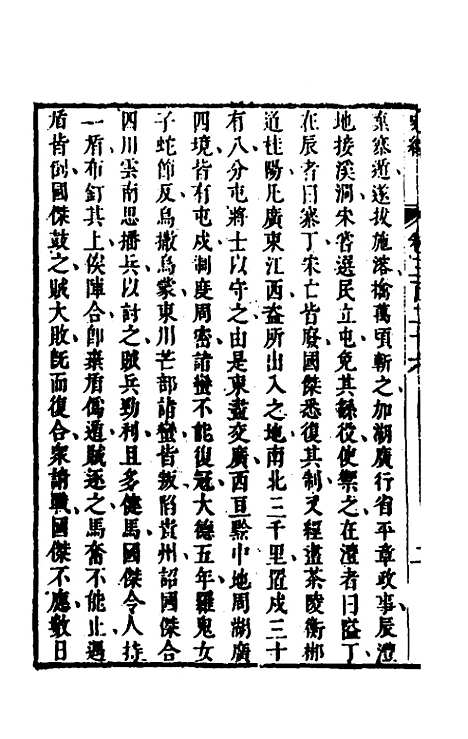 棄寨遁遂拔施溶擒萬頃斬之加湖廣行省平章政事辰澧
地接溪洞宋嘗選民立屯免其繇役使禦之在澧者曰隘丁
在辰者曰寨丁宋亡皆廢國傑悉復其制又經畫茶陵衡郴
道桂陽凡廣東江西盜所出入之地南北三千里置戍三十
有八分屯將士以守之由是東盡交廣西亘黔中地周湖廣
四境皆有屯戍制度周密諸蠻不能復冠大德五年羅鬼女
子蛇節反烏撒烏蒙東川芒部諸蠻皆叛陷貴州詔國傑合
四川雲南思播兵以討之賊兵勁利且多健馬國傑令人持
一盾布釘其上俟陣合卽棄盾僞遁賊逐之馬奮不能止遇
盾皆倒國傑鼓之賊大敗旣而復合衆請戰國傑不應數日